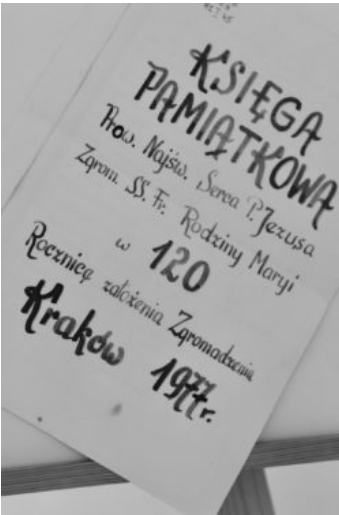 KSIĘGA
PAMIĄTKOWA
Prow. Najśw. Serca P. Jezusa
Zgrom. SS. Fr. Rodziny Maryi
w 120
Rocznicę założenia Zgromadzenia
Kraków 1977r.